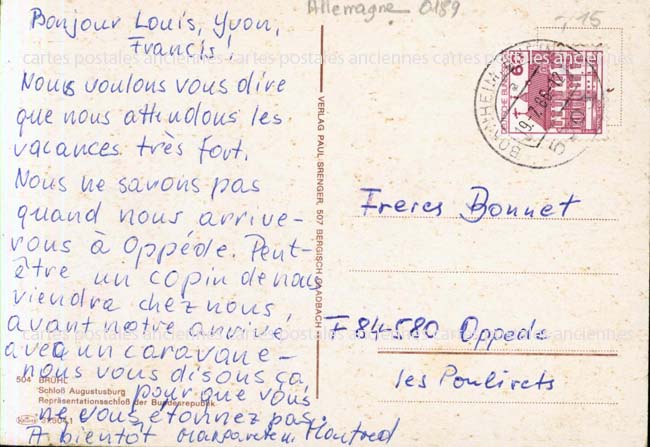 Allemagne 0189
15
Bonjour Louis, Yvon,
Francis!
Nous voulons vous dire
que nous attendons les
vacances très fort.
Nous ne savons pas
quand nous arrive-
rons à Oppède. Peut-
être un copin de nous
viendra chez nous,
avant notre arrivé,
avec un caravane –
nous vous disons ça
pour que vous
ne vous étonnez pas.
A bientôt Manfred
504 BRÜHL
Schloß Augustusburg
Repräsentationsschloß der Bundesrepublik
VERLAG PAUL SRENGER, 507 BERGISCH GLADBACH
BORNHEIM
9.7.86-12
60
Freres Bonnet
F 84-580 Oppede
les Poulivets
cartes postales anciennes cartes postales anciennes cartes postales anciennes
cartes postales anciennes cartes postales anciennes cartes postales anciennes